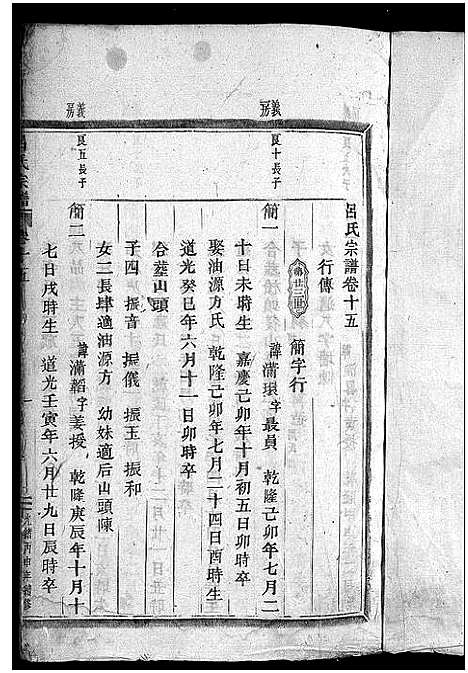 呂氏宗譜卷十五
行傳
第廿三世
簡字行
義房
良十長子
簡一
諱瀟環字最員 乾隆己卯年七月二
十日未時生 嘉慶己卯年十月初五日卯時卒
娶油源方氏 乾隆己卯年七月二十四日酉時生
道光癸巳年六月十一日卯時卒
合塟山頭
子四 振音 振儀 振玉 振和
女二長肆適油源方 幼妹適后山頭陳
義房
良五長子
簡二
諱瀟韜字姜授 乾隆庚辰年十月十
七日戌時生 道光壬寅年六月廿九日辰時卒